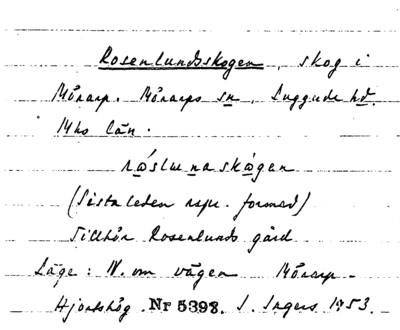 Rosenlundsskogen, skog i
Mörarp. Mörarps sn, Luggude hd.
Mhs län.
(Sista leden rspr. formad)
Tillhör Rosenlunds gård
Läge: N. om vägen Mörarp -
Hjortshög. Nr 5398. I. Ingers 1953.